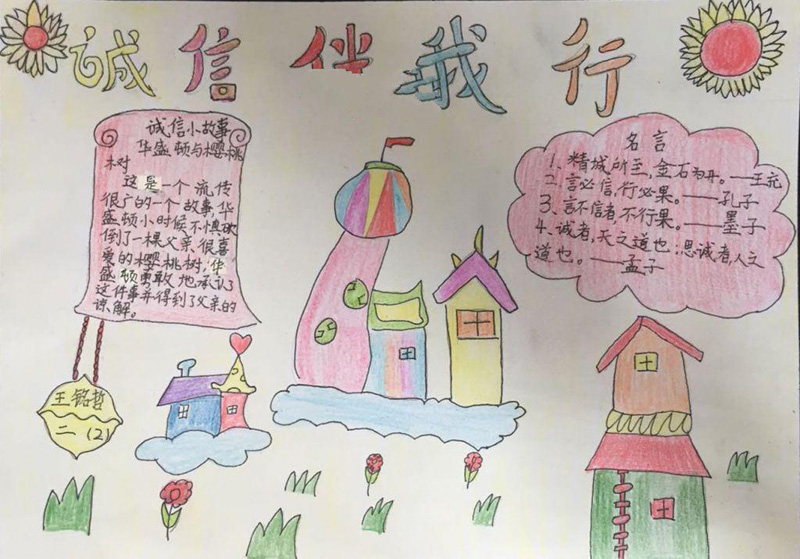 诚信伴我行
诚信小故事
华盛顿与樱桃
树
这是一个流传
很广的一个故事,华
盛顿小时候不惧砍
倒了一棵父亲很喜
爱的樱桃树,华
盛顿勇敢地承认了
这件事并得到了父亲的
谅解。
王铭哲
二(2)
名言
1、精城所至,金石为开。——王充
2、言必信,行必果。——孔子
3、言不信者,不行果。——墨子
4、诚者,天之道也;思诚者,人之
道也。——孟子